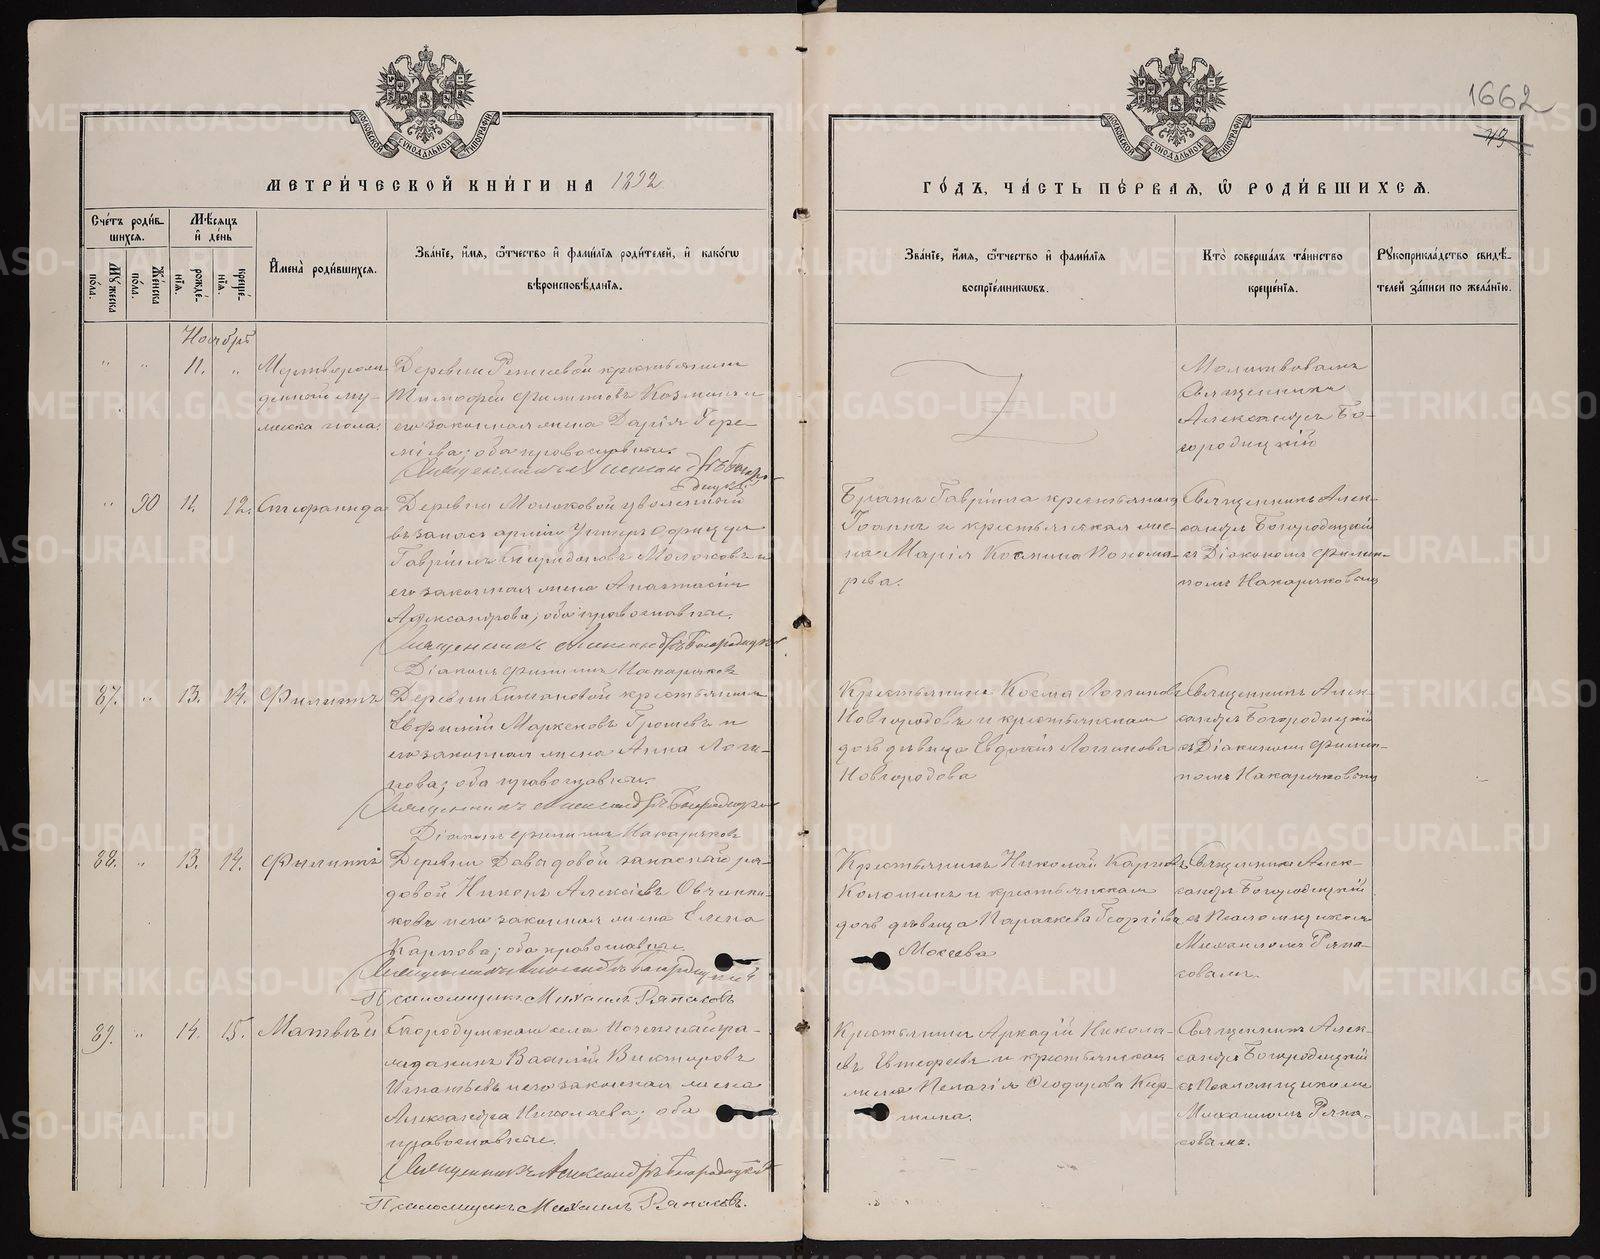 1662
43
МОСКОВСКОЙ СѴНОДАЛЬНОЙ ТИПОГРАФІИ
МОСКОВСКОЙ СѴНОДАЛЬНОЙ ТИПОГРАФІИ
МЕТРИ́ЧЕСКОЙ КНИ́ГИ НА 1892
ГО́ДЪ, ЧА́СТЬ ПЕ́РВАЯ, Ѿ РОДИ́ВШИХСЯ.
Сче́тъ роди́в-
шихся.
Мꙋжеска по́ла.
Же́нска по́ла.
Мѣ́сяцъ
и҆ де́нь
рожде́нїя.
креще́нїя.
И҆мена̀ роди́вшихся.
Зва́нїе, и҆́мя, ѻ҆́тчество и҆ фами́лїя роди́телей, и҆ како́гѡ
вѣроисповѣ́данїя.
Зва́нїе, и҆́мя, ѻ҆́тчество и҆ фами́лїя
воспрїе́мникѡвъ.
Кто̀ соверша́лъ та́инство
креще́нїя.
Рꙋкоприкла́дство свидѣ́-
телей за́писи по жела́нїю.
Ноябрь
" " 11. " Мертворож
денной му-
жеска пола.
Деревни крестьянинъ
Тимофей Филиповъ Козминъ и
его законная жена Дарія Гере-
міева; оба православные.
Священникъ Александръ Богоро-
дицкій
Молитвовалъ
Священникъ
Александръ Бо-
городицкій
" 90 11. 12. Синфарида
Деревни Молоковой уволенный
въ запасъ арміи Унтеръ Офицеръ
Гавріилъ Спиридоновъ Молоковъ и
его законная жена Анастасія
Александрова; оба православные.
Священникъ Александръ Богородицкій
Діаконъ Филиппъ Накаряковъ
Братъ Гавріила крестьянинъ
Іоаннъ и крестьянская же-
на Марія Космина Понома-
рева.
Священникъ Алек-
сандръ Богородицкій
съ Діакономъ Филип-
помъ Накаряковымъ
87. " 13. 14. Филиппъ
Деревни крестьянинъ
Евфимій Маркеловъ и
его законная жена Анна Логи-
нова; оба православные.
Священникъ Александръ Богородицкій
Діаконъ Филиппъ Накаряковъ
Крестьянинъ Косма Логгиновъ
Новгородовъ и крестьянская
дочь дѣвица Евдокія Логгинова
Новгородова
Священникъ Алек-
сандръ Богородицкій
съ Діакономъ Филип-
помъ Накаряковымъ
88. " 13. 14. Филиппъ
Деревни запаснаго ря-
довой Никонъ Алексіевъ Овчинни-
ковъ и его законная жена Елена
Карпова; оба православные.
Священникъ Александръ Богородицкій
Псаломщикъ Михаилъ Ряпасовъ
Крестьянинъ Николай Карповъ
Колошинъ и крестьянская
дочь дѣвица Параскева Георгіева
Мокеева
Священникъ Алек-
сандръ Богородицкій
съ Псаломщикомъ
Михаиломъ Ряпа-
совымъ.
89. " 14. 15. Матвѣй
Скородумскаго села Почетный гра-
жданинъ Василій Викторовъ
Игнатьевъ и его законная жена
Александра Николаева; оба
православные.
Священникъ Александръ Богородицкій
Псаломщикъ Михаилъ Ряпасовъ.
Крестьянинъ Аркадій Никола-
евъ Евтюревъ и крестьянская
жена Пелагія Ѳеодорова Кир-
пина.
Священникъ Алек-
сандръ Богородицкій
съ Псаломщикомъ
Михаиломъ Ряпа-
совымъ.
METRIKI.GASO-URAL.RU